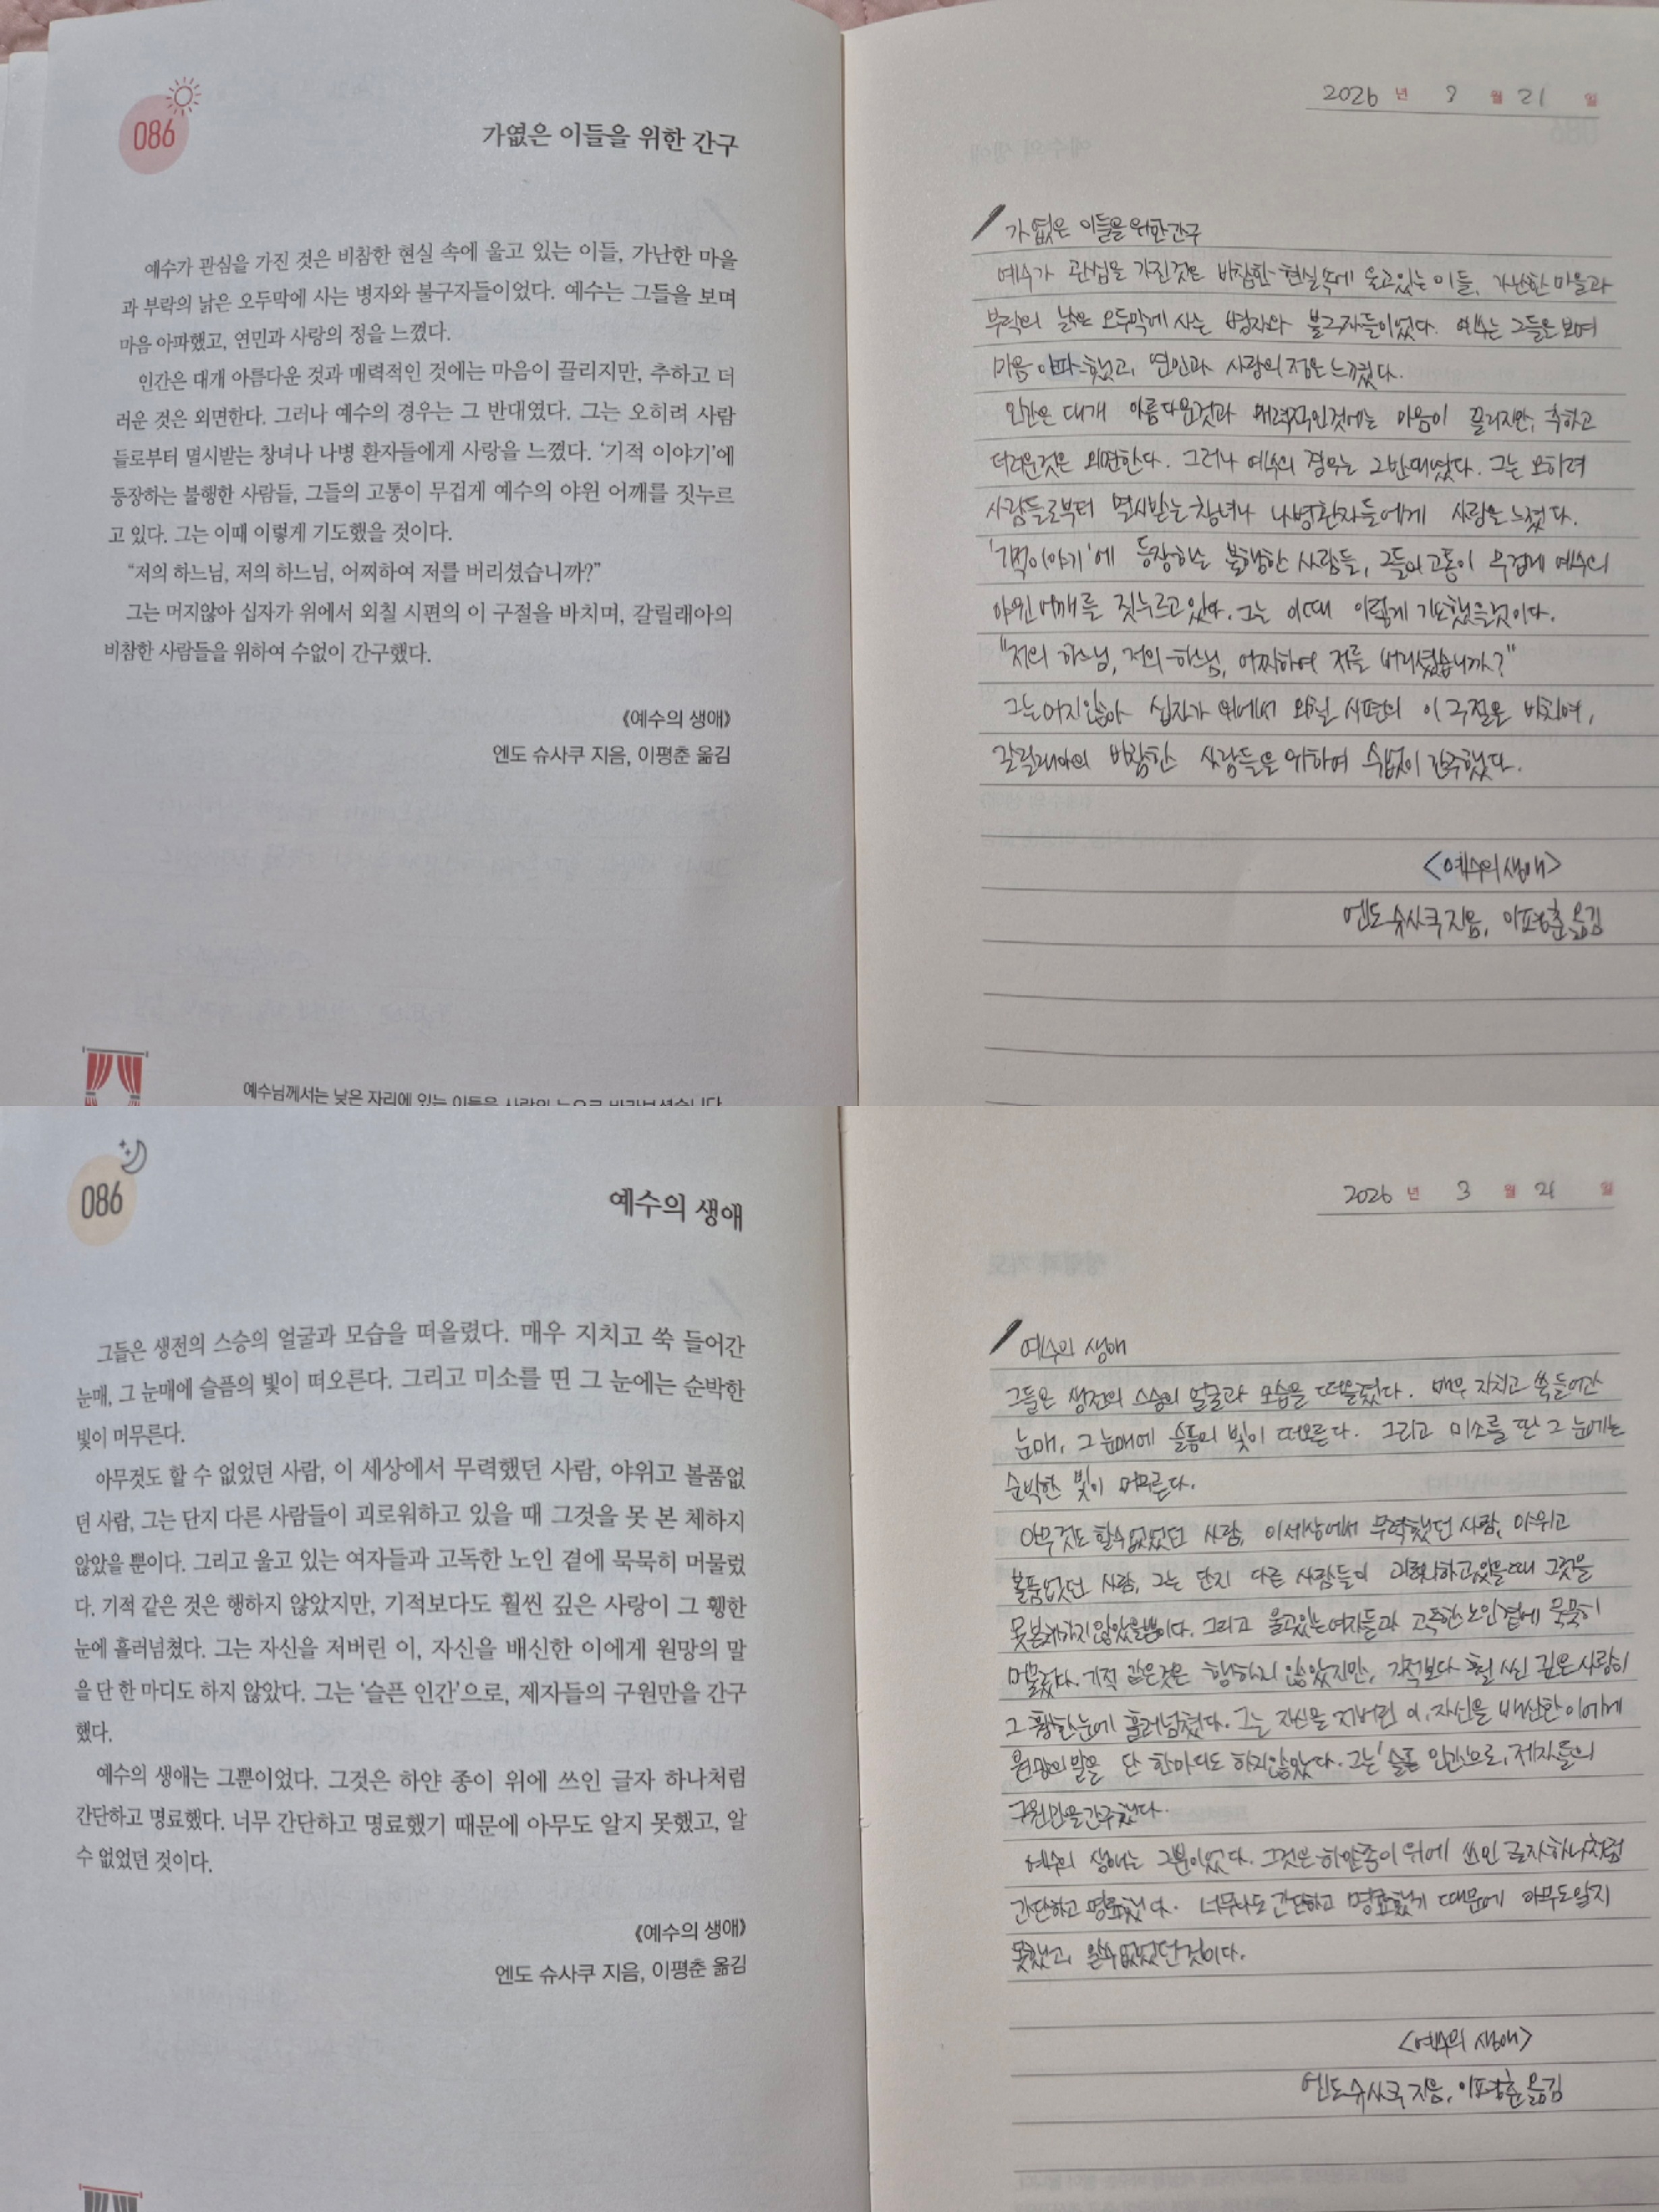 086
가엾은 이들을 위한 간구
예수가 관심을 가진 것은 비참한 현실 속에 울고 있는 이들, 가난한 마을
과 부락의 낡은 오두막에 사는 병자와 불구자들이었다. 예수는 그들을 보며
마음 아파했고, 연민과 사랑의 정을 느꼈다.
인간은 대개 아름다운 것과 매력적인 것에는 마음이 끌리지만, 추하고 더
러운 것은 외면한다. 그러나 예수의 경우는 그 반대였다. 그는 오히려 사람
들로부터 멸시받는 창녀나 나병 환자들에게 사랑을 느꼈다. ‘기적 이야기’에
등장하는 불행한 사람들, 그들의 고통이 무겁게 예수의 야윈 어깨를 짓누르
고 있다. 그는 이때 이렇게 기도했을 것이다.
“저의 하느님, 저의 하느님, 어찌하여 저를 버리셨습니까?”
그는 머지않아 십자가 위에서 외칠 시편의 이 구절을 바치며, 갈릴래아의
비참한 사람들을 위하여 수없이 간구했다.
《예수의 생애》
엔도 슈사쿠 지음, 이평춘 옮김
예수님께서는 낮은 자리에 있는 이들을 사랑의 눈으로 바라보셨습니다
2026 년 3 월 21 일
가엾은 이들을 위한 간구
예수가 관심을 가진것은 비참한 현실속에 울고있는 이들, 가난한 마을과
부락의 낡은 오두막에 사는 병자와 불구자들이었다. 예수는 그들을 보며
마음 아파했고, 연민과 사랑의 정을 느꼈다.
인간은 대개 아름다운것과 매력적인것에는 마음이 끌리지만, 추하고
더러운것은 외면한다. 그러나 예수의 경우는 그반대였다. 그는 오히려
사람들로부터 멸시받는 창녀나 나병환자들에게 사랑을 느꼈다.
'기적이야기'에 등장하는 불행한 사람들, 그들의 고통이 무겁게 예수의
야윈 어깨를 짓누르고있다. 그는 이때 이렇게 기도했을것이다.
"저의 하느님, 저의 하느님, 어찌하여 저를 버리셨습니까?"
그는 머지않아 십자가 위에서 외칠 시편의 이 구절을 바치며,
갈릴래아의 비참한 사람들을 위하여 수없이 간구했다.
<예수의 생애>
엔도 슈사쿠 지음, 이평춘 옮김
086
예수의 생애
그들은 생전의 스승의 얼굴과 모습을 떠올렸다. 매우 지치고 쑥 들어간
눈매, 그 눈매에 슬픔의 빛이 떠오른다. 그리고 미소를 띤 그 눈에는 순박한
빛이 머무른다.
아무것도 할 수 없었던 사람, 이 세상에서 무력했던 사람, 야위고 볼품없
던 사람, 그는 단지 다른 사람들이 괴로워하고 있을 때 그것을 못 본 체하지
않았을 뿐이다. 그리고 울고 있는 여자들과 고독한 노인 곁에 묵묵히 머물렀
다. 기적 같은 것은 행하지 않았지만, 기적보다도 훨씬 깊은 사랑이 그 휑한
눈에 흘러넘쳤다. 그는 자신을 저버린 이, 자신을 배신한 이에게 원망의 말
을 단 한 마디도 하지 않았다. 그는 ‘슬픈 인간’으로, 제자들의 구원만을 간구
했다.
예수의 생애는 그뿐이었다. 그것은 하얀 종이 위에 쓰인 글자 하나처럼
간단하고 명료했다. 너무 간단하고 명료했기 때문에 아무도 알지 못했고, 알
수 없었던 것이다.
《예수의 생애》
엔도 슈사쿠 지음, 이평춘 옮김
2026 년 3 월 21 일
예수의 생애
그들은 생전의 스승의 얼굴과 모습을 떠올렸다. 매우 지치고 쑥들어간
눈매, 그 눈매에 슬픔의 빛이 떠오른다. 그리고 미소를 띤 그 눈에는
순박한 빛이 머무른다.
아무것도 할수없었던 사람, 이세상에서 무력했던 사람, 야위고
볼품없던 사람, 그는 단지 다른 사람들이 괴로워하고있을때 그것을
못본체하지 않았을뿐이다. 그리고 울고있는여자들과 고독한노인곁에 묵묵히
머물렀다. 기적 같은것은 행하지 않았지만, 기적보다 훨씬 깊은 사랑이
그 휑한눈에 흘러넘쳤다. 그는 자신을 저버린 이, 자신을 배신한 이에게
원망의 말을 단 한마디도 하지않았다. 그는 '슬픈 인간'으로, 제자들의
구원만을 간구했다.
예수의 생애는 그뿐이었다. 그것은 하얀종이 위에 쓰인 글자하나처럼
간단하고 명료했다. 너무나도 간단하고 명료했기 때문에 아무도 알지
못했고, 알수없었던것이다.
<예수의 생애>
엔도슈사쿠 지음, 이평춘 옮김